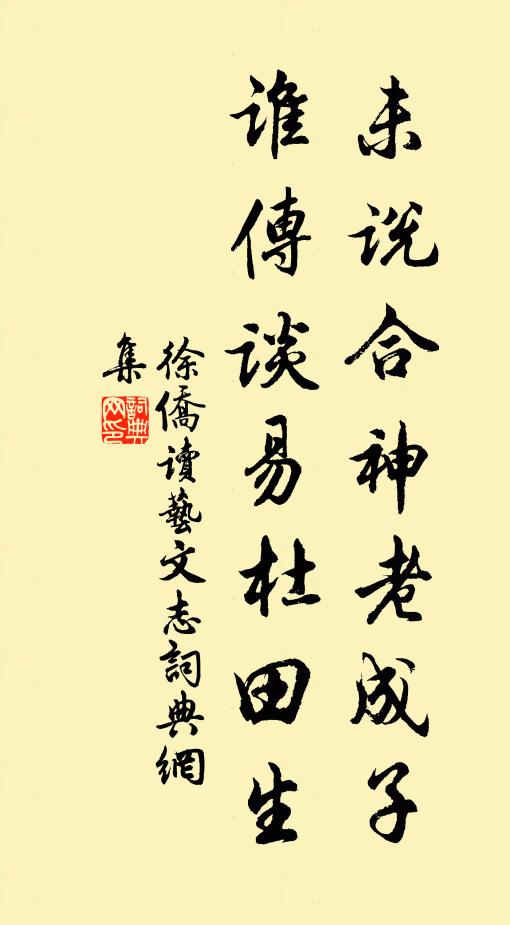 未说合神老成子
谁傳谈易杜田生
徐僑讀藝文志詞典網
集
詞典网印